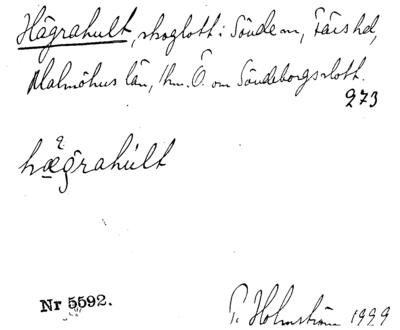 Hägrahult, skoglott i Sövde sn, Färs hd,
Malmöhus län, 1 km. Ö. om Sövdeborgs slott.
273
hægrahult
Nr 5592.
Holmström 1929